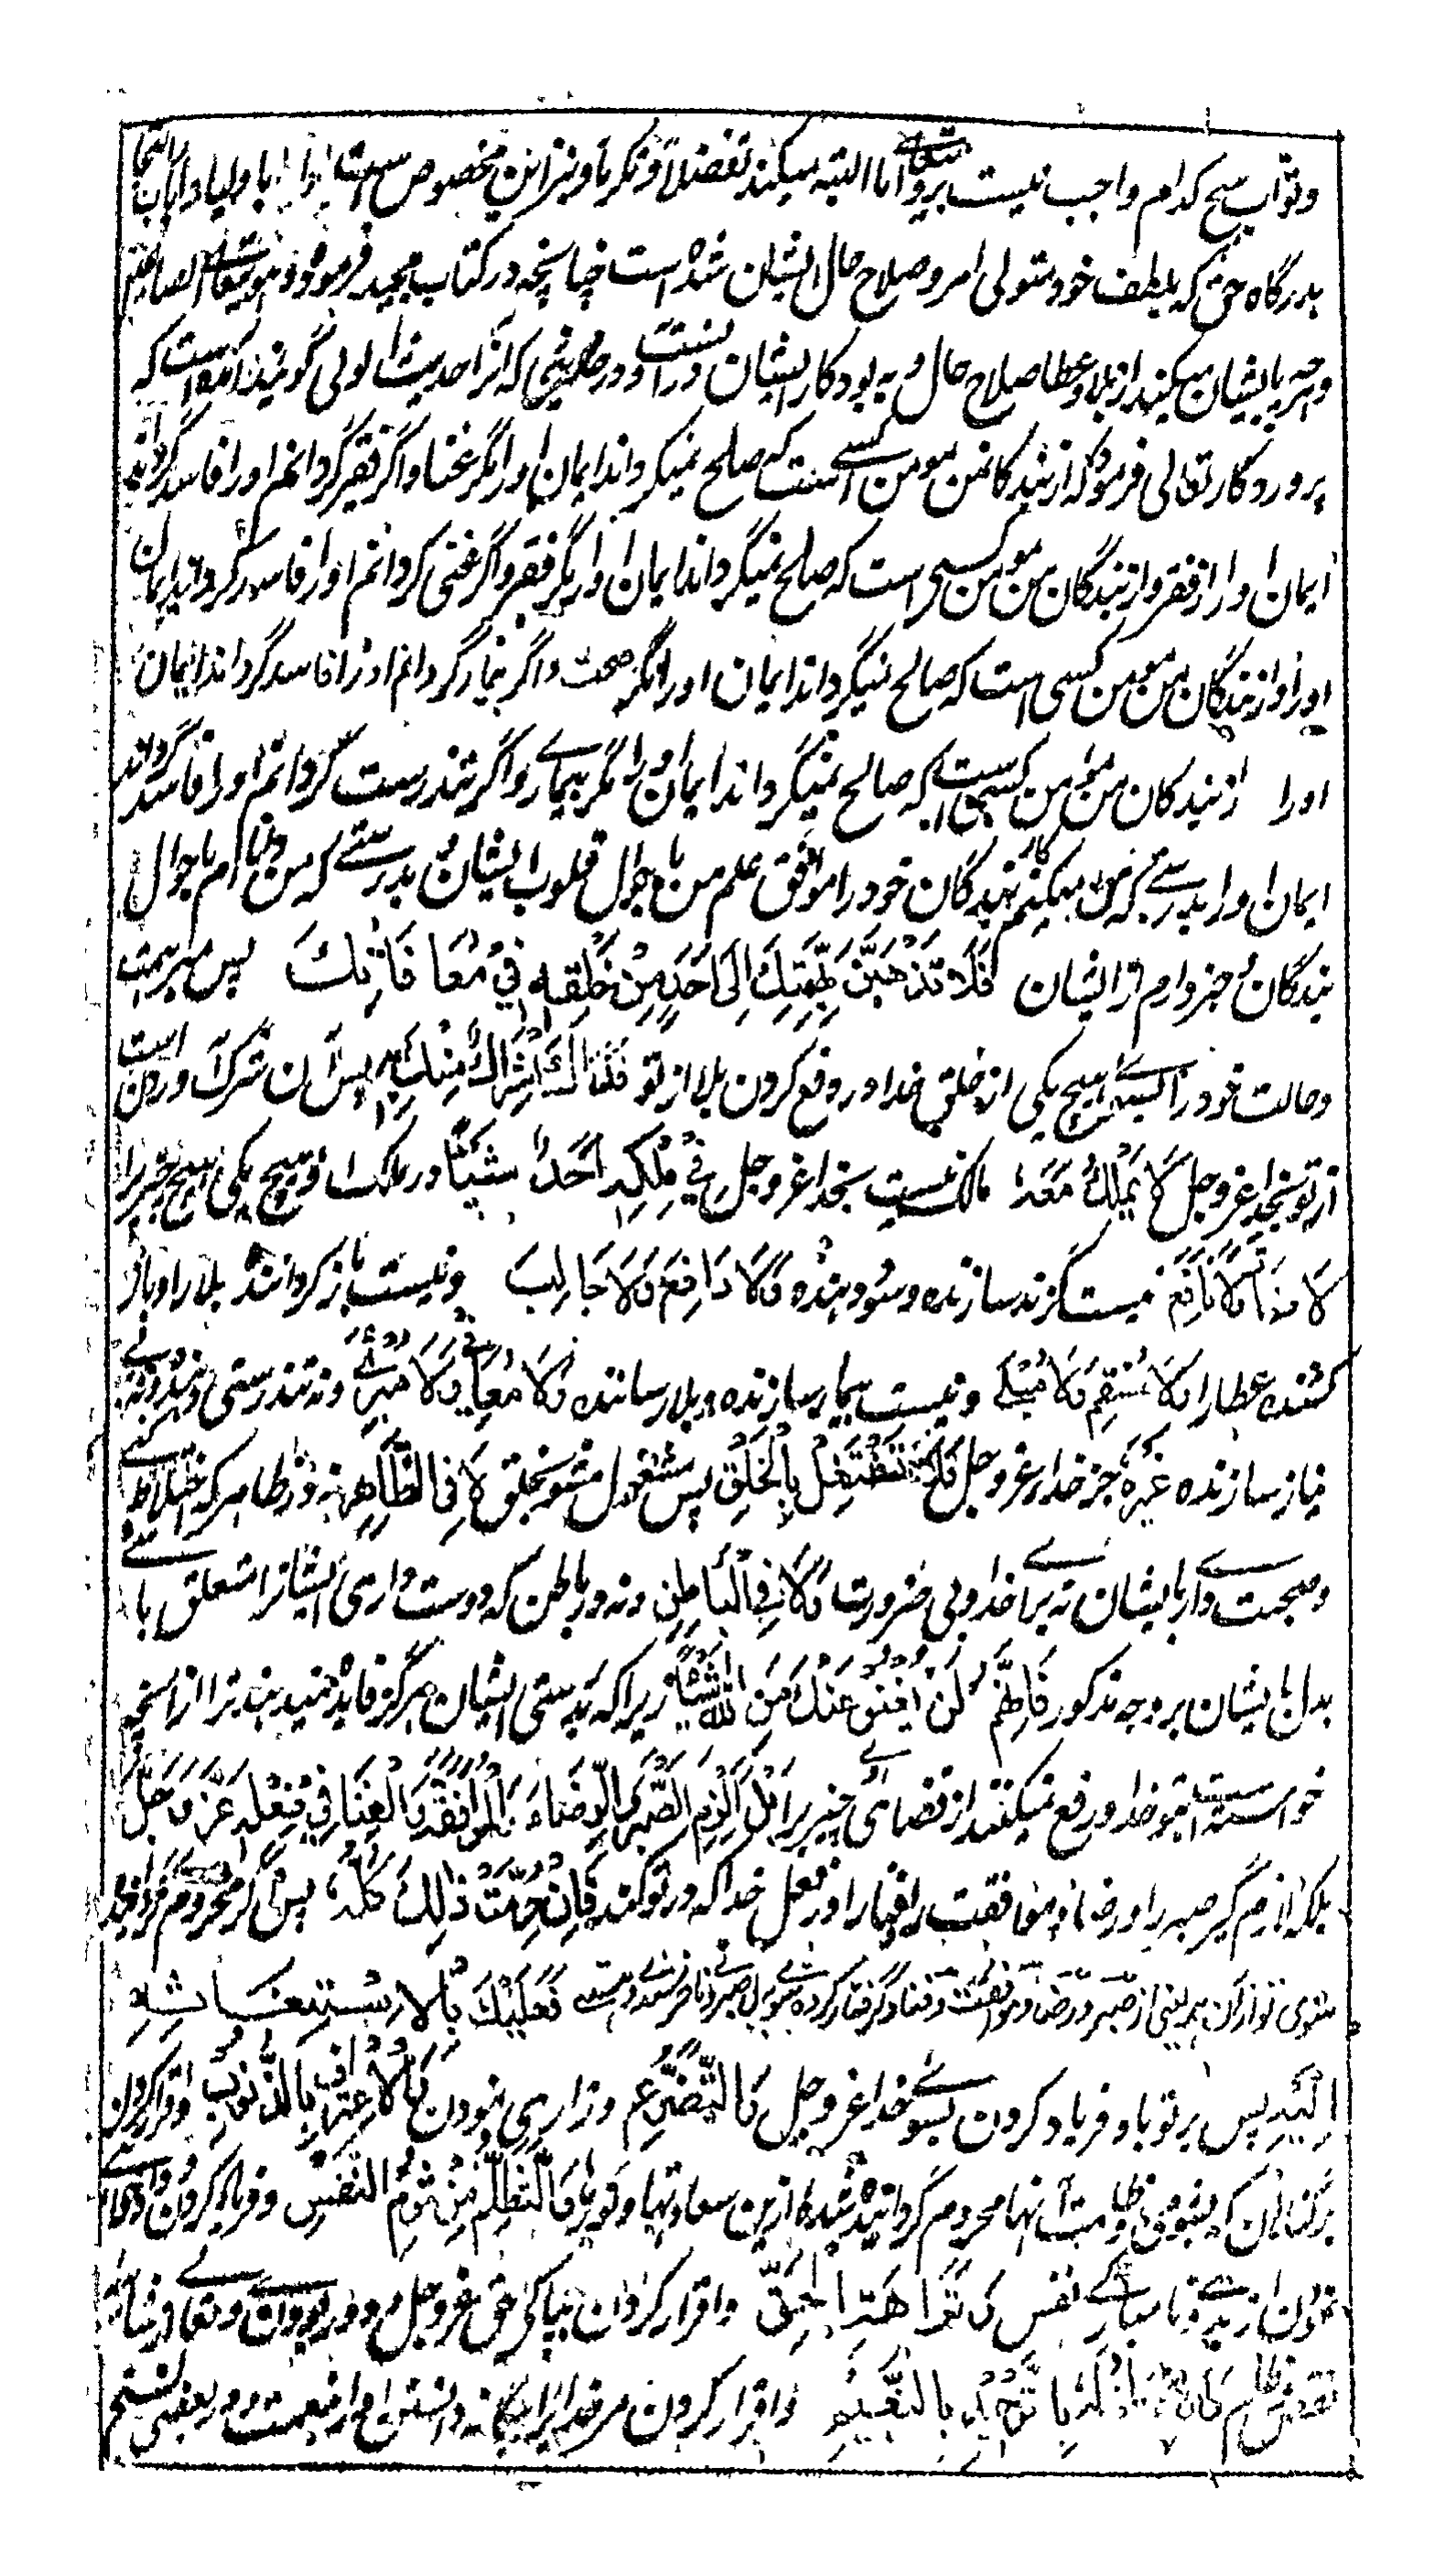 وثواب هیچ کدام واجب نیست بروتعالی اما البته میکند تفضلا وتکرما ونیز این مخصوص ست باولیا وارباب التجا
بدرگاه حق که بلطف خود متولی امر وصلاح حال ایشان شده است چنانچه در کتاب مجید فرموده وهو یتولی الصالحین
وهرچه بایشان میکند از بلا وعطا صلاح حال و به بود کار ایشان درآنست ودر حدیثی که آنرا حدیث اولی گویند آمده است که
پروردگار تعالی فرمود که از بندگان من مومن کسی است که صلح نمیگرداند ایمان او را مگر غنا واگر فقیر گردانم او را فاسد گرداند
ایمان او را از فقر واز بندگان من مومن کسی است که صلح نمیگرداند ایمان او را مگر فقر واگر غنی گردانم او را فاسد گرداند ایمان
او را واز بندگان من مومن کسی است که صالح نمیگرداند ایمان او را مگر صحت واگر بیمار گردانم او را فاسد گرداند ایمان
اورا از بندگان من مومن کسی است که صالح نمیگرداند ایمان او را مگر بیماری واگر تندرست گردانم او را فاسد گرداند
ایمان او را بدرستی که من میکنم کار بندگان خود را موافق علم من باحوال قلوب ایشان بدرستی که من دانا ام باحوال
بندگان وخبر دارم از ایشان فَلَا تَذْهَبَنَّ بِهِمَّتِكَ اِلَى اَحَدٍ مِنْ خَلْقِهٖ فِيْ مُعَافَاتِكَ پس مبر همت
وحالت خود را بسوی هیچ یکی از خلق خدا در دفع کردن بلا از تو فَذَاكَ اِشْرَاكٌ مِنْكَ بِهٖ پس آن شرک آوردن است
از تو بخدا عزوجل لَا يَمْلِكُ مَعَهٗ مالک نیست بخدا عزوجل فِيْ مُلْكِهٖ اَحَدٌ شَيْئًا در ملک او هیچ یکی هیچ چیز را
لَا ضَارَّ وَلَا نَافِعَ نیست گزند سازنده وسود دهنده وَلَا دَافِعَ وَلَا جَالِبَ ونیست باز گرداننده بلا را وباز
کشنده عطا را وَلَا مُسْقِمَ وَلَا مُبْلِيَ ونیست بیمار سازنده وبلا رساننده وَلَا مُعَافِيَ وَلَا مُبْرِئَ ونه تندرستی دهنده ونه بی
نیاز سازنده غَيْرُهٗ جز خدای عزوجل فَلَا تَشْتَغِلْ بِالْخَلْقِ پس مشغول مشو بخلق لَا فِي الظَّاهِرِ نه در ظاهر که اختلاط کنی
وصحبت داری بایشان نه برای خدا وبی ضرورت وَلَا فِي الْبَاطِنِ ونه در باطن که دوست داری ایشانرا وتعلق با
بدل بایشان بر وجه مذکور فَاِنَّهُمْ لَنْ يُغْنُوْا عَنْكَ مِنَ اللّٰهِ شَيْئًا زیرا که بدرستی ایشان هرگز فایده نمیدهند ترا از آنچه
خواسته است بتو خدا ودفع نمیکنند از قضای وی چیزی را بَلْ اَلْزِمِ الصَّبْرَ وَالرِّضَاءَ وَالْمُوَافَقَةَ وَالْفَنَاءَ فِيْ فِعْلِهٖ عَزَّ وَجَلَّ
بلکه لازم گیر صبر را ورضا را وموافقت را وفنا را در فعل خدا که در تو کند فَاِنْ حُرِمْتَ ذٰلِكَ كُلَّهٗ پس اگر محروم گردانیده
شوی تو از آن همه یعنی از صبر ورضا وموافقت وفنا وگرفتار کرده شوی به بی صبری ونا خرسندی وهستی فَعَلَيْكَ بِالْاِسْتِغَاثَةِ
اِلَيْهِ پس بر تو باد فریاد کردن بسوی خدا عزوجل وَالتَّضَرُّعِ وزاری نمودن وَالْاِعْتِرَافِ بِالذُّنُوْبِ واقرار کردن
بر گناهان که بشومی وظلمت آنها محروم گردانیده شده از این سعادتها وَالتَّظَلُّمِ مِنْ شُومِ النَّفْسِ وفریاد کردن ودادخواهی
نمودن از بدی ونامبارکی نفس وَنَزَاهَةِ الْحَقِّ واقرار کردن به پاکی حق عزوجل ودور بودن وی تعالی از شائبه
نقص وظلم بِالتَّوْحِيْدِ بِالنِّعَمِ واقرار کردن مر خدا را به یگانه دانستن او در نعمت ودر بعضی نسخ